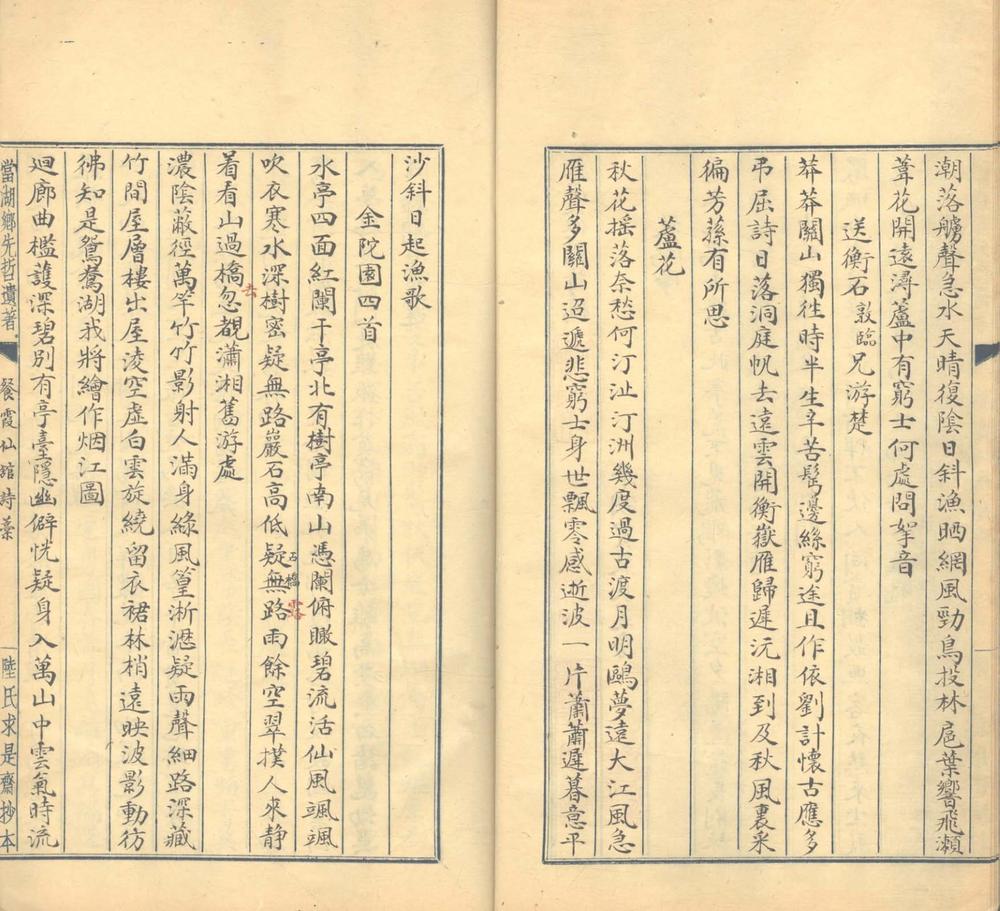 潮落艣聲急水天晴復陰日斜漁晒網風勁鳥投林扈葉響飛瀨
葦花開遠潯蘆中有窮士何處問挐音
送衡石敦臨兄游楚
莽莽關山獨往時半生辛苦鬂邊絲窮途且作依劉計懷古應多
弔屈詩日落洞庭帆去遠雲開衡嶽雁歸遲沅湘到及秋風裏采
徧芳蓀有所思
蘆花
秋花搖落奈愁何汀沚汀洲幾度過古渡月明鷗夢遠大江風急
雁聲多關山迢遞悲窮士身世飄零感逝波一片蕭蕭遲暮意平
沙斜日起漁歌
金陀園四首
水亭四面紅闌干亭北有樹亭南山憑闌俯瞰碧流活仙風颯颯
吹衣寒水深樹密疑無路巖石高低疑無路雨餘空翠撲人來靜
石橋露
着看山過橋忽覩瀟湘舊游處
去
濃陰蔽徑萬竿竹竹影射人滿身綠風篁淅瀝疑雨聲細路深藏
竹間屋層樓出屋淩空虛白雲旋繞留衣裙林梢遠映波影動彷
彿知是鴛鴦湖我將繪作烟江圖
迴廊曲檻護深碧別有亭臺隱幽僻恍疑身入萬山中雲氣時流
當湖鄉先哲遺著
餐霞仙館詩藁
陸氏求是齋抄本